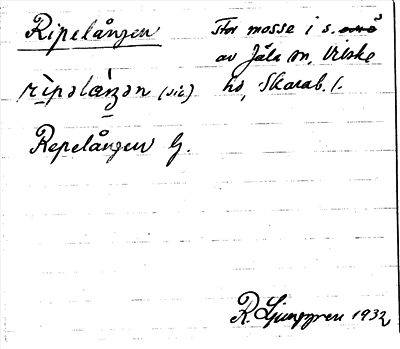 Ripelången
rìpəláŋən (sic)
Repelången G.
stor mosse i s.
av Jäla sn, Vilske
hd, Skarab. l.
R. Ljunggren 1932